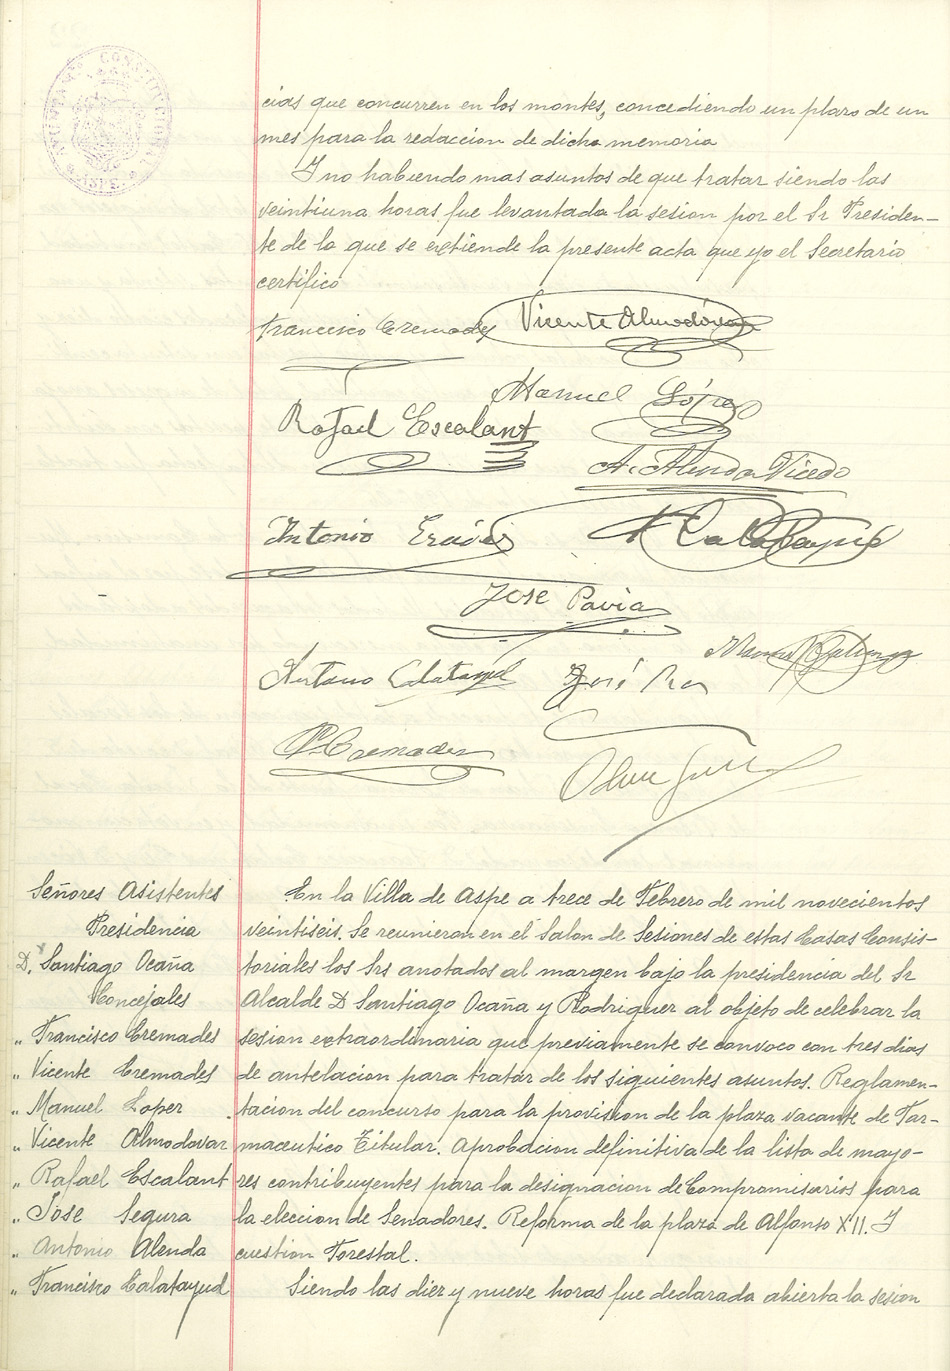 AYUNTAMIENTO CONSTITUCIONAL
ASPE
cias que concurren en los montes, concediendo un plazo de un
mes para la redaccion de dicha memoria
Y no habiendo mas asuntos de que tratar siendo las
veintiuna horas fue levantada la sesion por el Sr Presiden-
te de la que se extiende la presente acta que yo el Secretario
certifico
Francisco Cremades Vicente Almodóvar
Manuel López
Rafael Escalant
A. Alenda Vicedo
Antonio
Calatayud
Jose Pavia
Antonio Calatayud José
Cremades
Señores Asistentes
Presidencia
D. Santiago Ocaña
Concejales
" Francisco Cremades
" Vicente Cremades
" Manuel Lopez
" Vicente Almodovar
" Rafael Escalant
" Jose Segura
" Antonio Alenda
" Francisco Calatayud
En la Villa de Aspe a trece de Febrero de mil novecientos
veintiseis. Se reunieron en el Salon de Sesiones de estas Casas Consis-
toriales los Srs anotados al margen bajo la presidencia del Sr
Alcalde D Santiago Ocaña y Rodriguez al objeto de celebrar la
sesion extraordinaria que previamente se convoco con tres dias
de antelacion para tratar de los siguientes asuntos. Reglamen-
tacion del concurso para la provision de la plaza vacante de Far-
maceutico Titular. Aprobacion definitiva de la lista de mayo-
res contribuyentes para la designacion de Compromisarios para
la eleccion de Senadores. Reforma de la plaza de Alfonso XII. Y
cuestion Forestal.
Siendo las diez y nueve horas fue declarada abierta la sesion